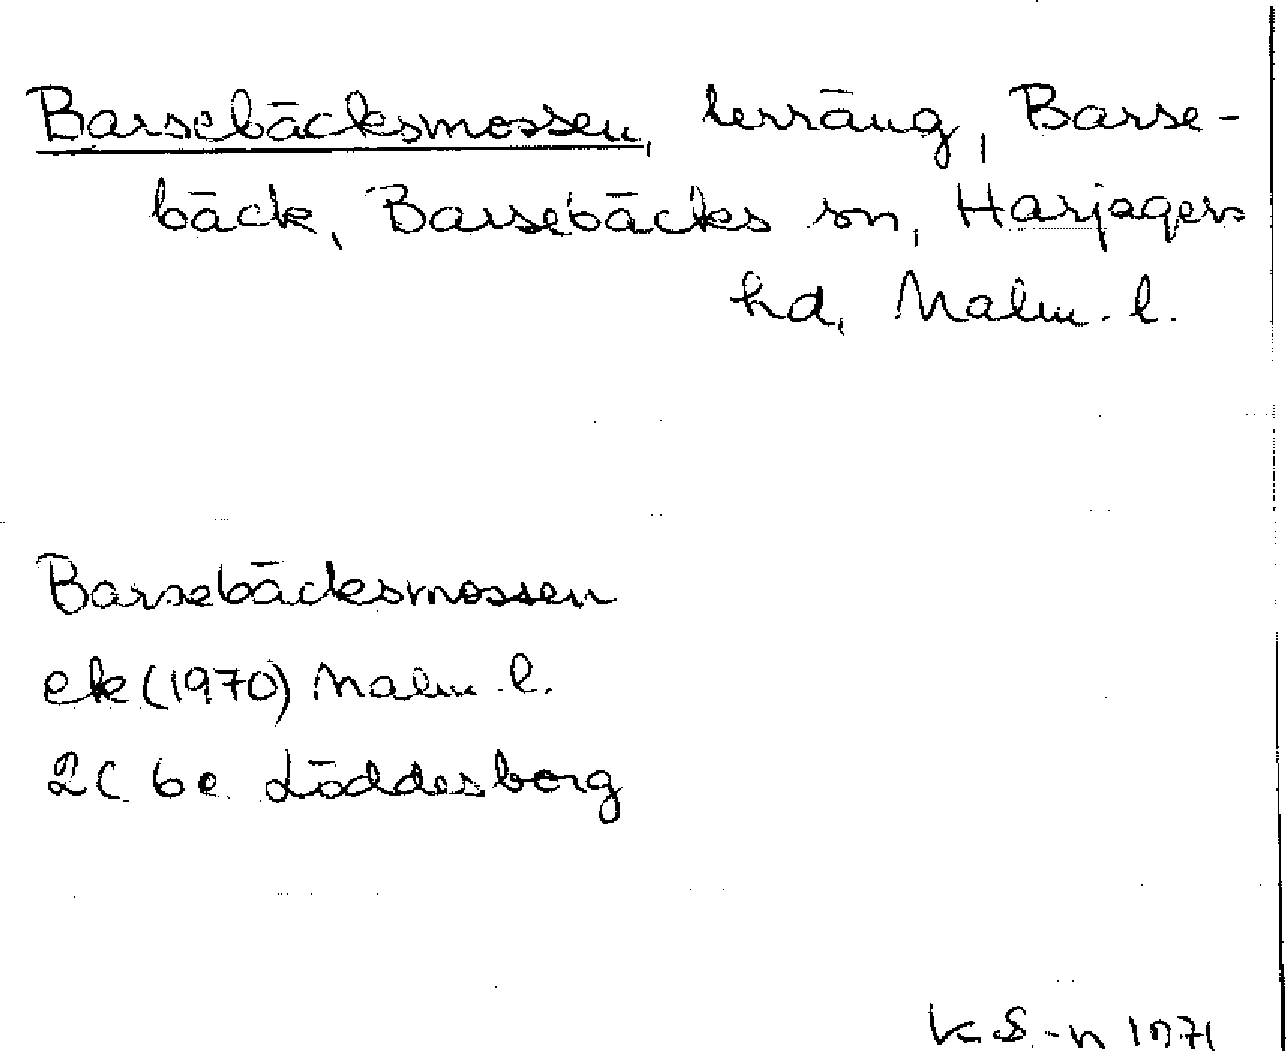 Barsebäcksmossen, terräng, Barse-
bäck, Barsebäcks sn, Harjagers
hd, Malm. l.
Barsebäcksmossen
ek (1970) Malm. l.
2C 6e Löddesborg
K S-n 1971